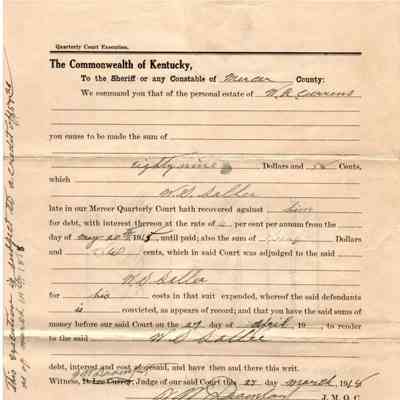 Quarterly Court Execution.
The Commonwealth of Kentucky,
To the Sheriff or any Constable of Mercer County:
We command you that of the personal estate of W. A. Currens
you cause to be made the sum of
Eighty nine Dollars and Cents,
which
W. D. Sallee
late in our Mercer Quarterly Court hath recovered against him
for debt, with interest thereon at the rate of 6 per cent per annum from the
day of May 20th 1915, until paid; also the sum of Dollars
and cents, which in said Court was adjudged to the said
W D Sallee
for his costs in that suit expended, whereof the said defendants
is convicted, as appears of record; and that you have the said sums of
money before our said Court on the 27 day of April, 19, to render
to the said W D Sallee
debt, interest and cost aforesaid, and have then and there this writ.
Witness, Judge of our said Court this 27 day March 1918
J. M. Q. C.
This execution is subject to a credit of
as of March 11th 1918